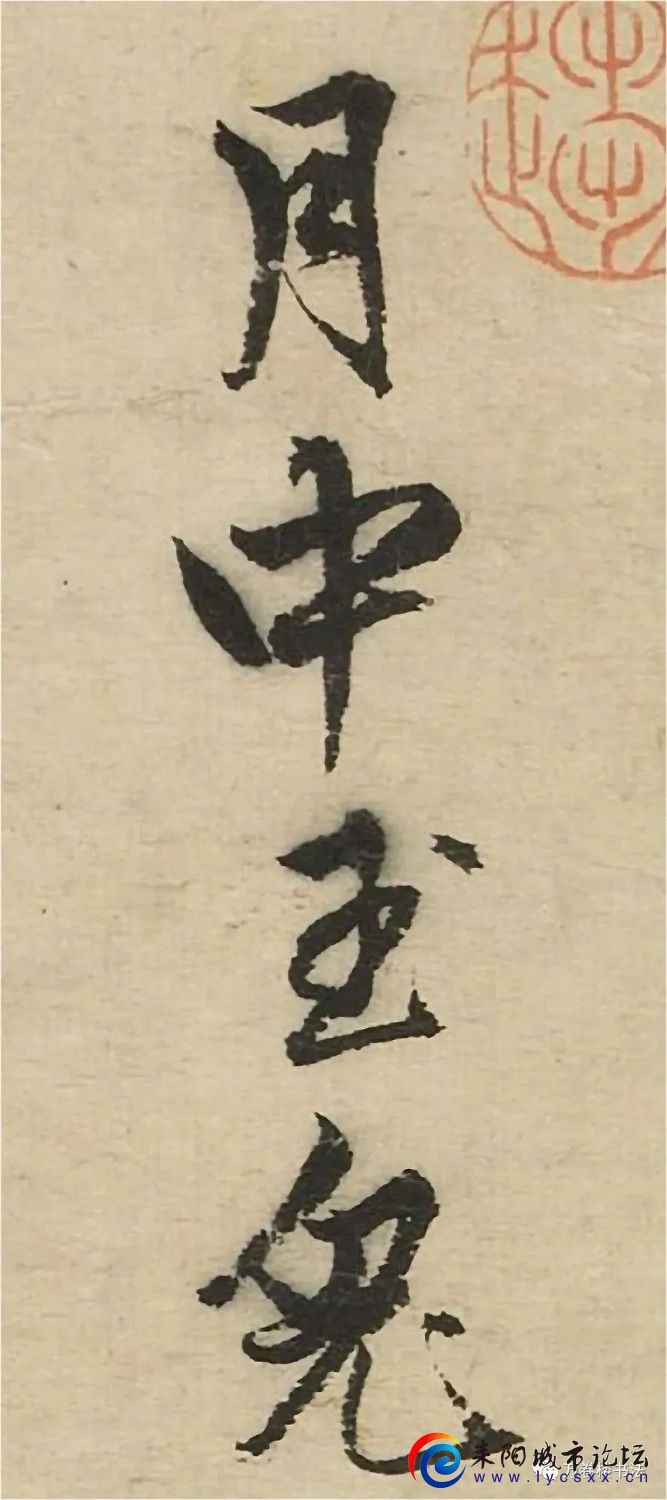 月中玉兔
耒阳城市论坛
www.lycsxx.cn